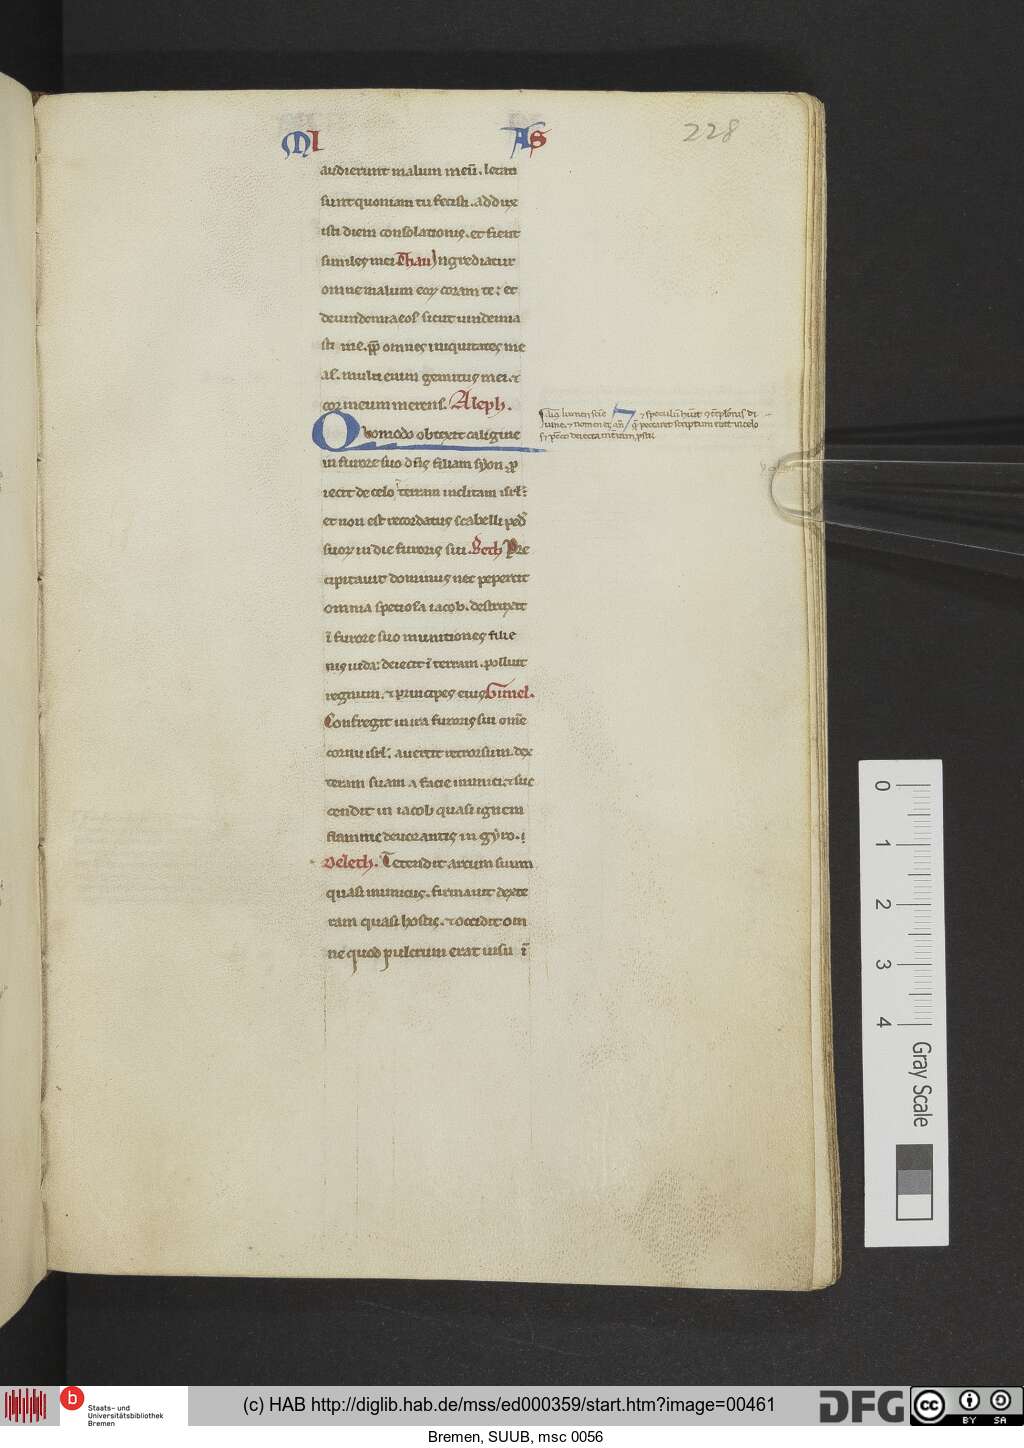 MI AS
228
audierunt malum meū. letati
sunt quoniam tu fecisti. addux
isti diem consolationis. et fient
similes mei. Thau Ingrediatur
omne malum eoꝝ coram te: et
deuindemia eos sicut uindemia
sti me. ꝓp omnes iniquitates me
as. multi enim gemitus mei. ⁊
cor meum merens. Aleph.
Quomodo obtexit caligine
in furore suo dn̄s filiam syon. ꝓ
iecit de celo terram inclitam isrl̄:
et non est recordatus scabelli ped
suoꝝ in die furoris sui. Beth Pre
cipitauit dominus nec pepercit
omnia speciosa iacob. destruxit
ī furore suo munitiones filie
nis iuda: deiecit ī terram. polluit
regnum. ⁊ principes eius Gimel.
Confregit in ira furoris sui om̄e
cornu isrl̄. auertit retrorsum dex
teram suam a facie inimici. ⁊ suc
cendit in iacob quasi ignem
flamme deuorantis in gyro.
Deleth. Tetendit arcum suum
quasi inimicus. firmauit dexte
ram quasi hostis. ⁊ occidit om
ne quod pulcrum erat uisu ī
0
1
2
3
4
Gray Scale
Staats- und
Universitätsbibliothek
Bremen
(c) HAB http://diglib.hab.de/mss/ed000359/start.htm?image=00461
DFG
cc BY SA
Bremen, SUUB, msc 0056